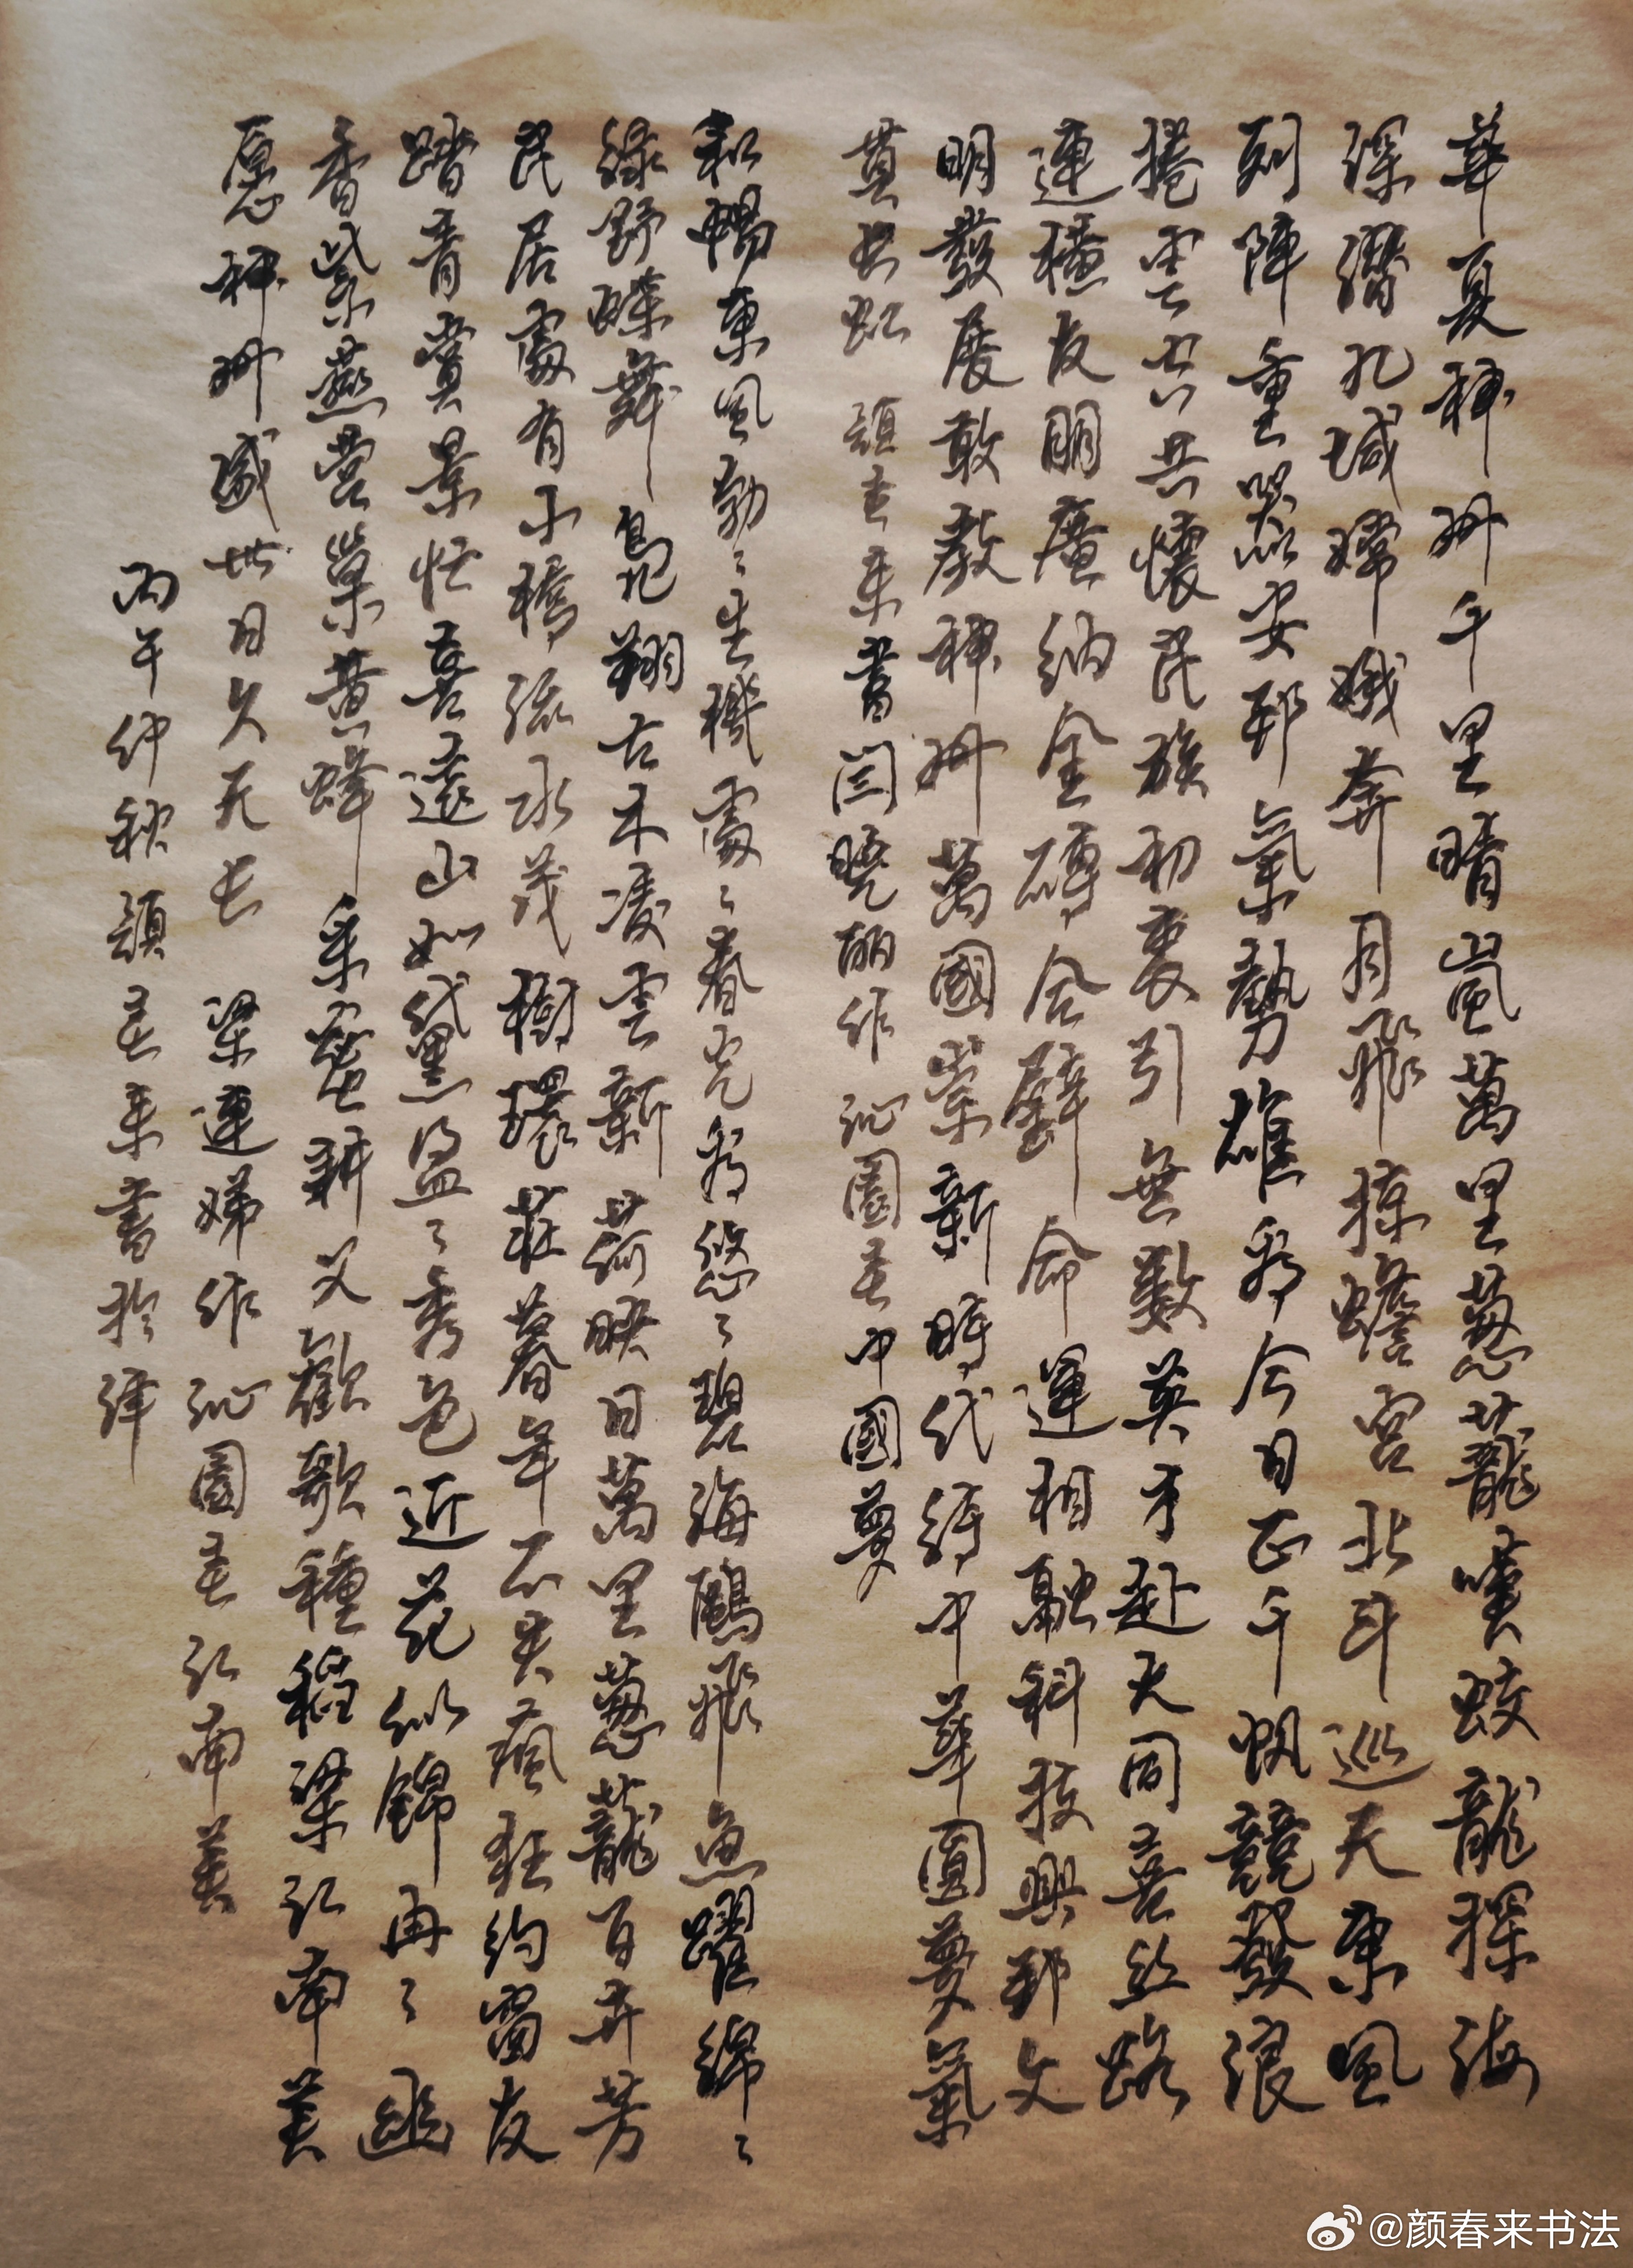 華夏神州千里晴嵐萬里葱蘢嘆蛟龍探海
深潛孔域嫦娥奔月飛掠蟾宮北斗巡天東風
列陣重器安邦氣勢雄看今日正千帆競發浪
捲雲空共懷民族初衷引無數英才赴大同喜絲路
連橫友朋廣納金磚合璧命運相融科技興邦文
明發展敢教神州萬國崇新時代縛中華圓夢氣
貫長虹 顔春來書閆曉丽作沁園春中國夢
和暢東風勃〻生機處〻春光看悠〻碧海鷗飛魚躍綿〻
綠野蝶舞鳥翔古木凌雲新荷映日萬里葱蘢百卉芳
民居處有小橋流水茂樹環莊暮年不失瘋狂約留友
踏青賞景忙喜遠山如黛盈〻秀色近花似錦冉〻幽
香紫燕營巢黄蜂采蜜耕叉歡歌種稻粱江南美
愿神州盛世日久天長 梁連娣作沁園春江南美
丙午仲秋顔春来書於津
@颜春来书法